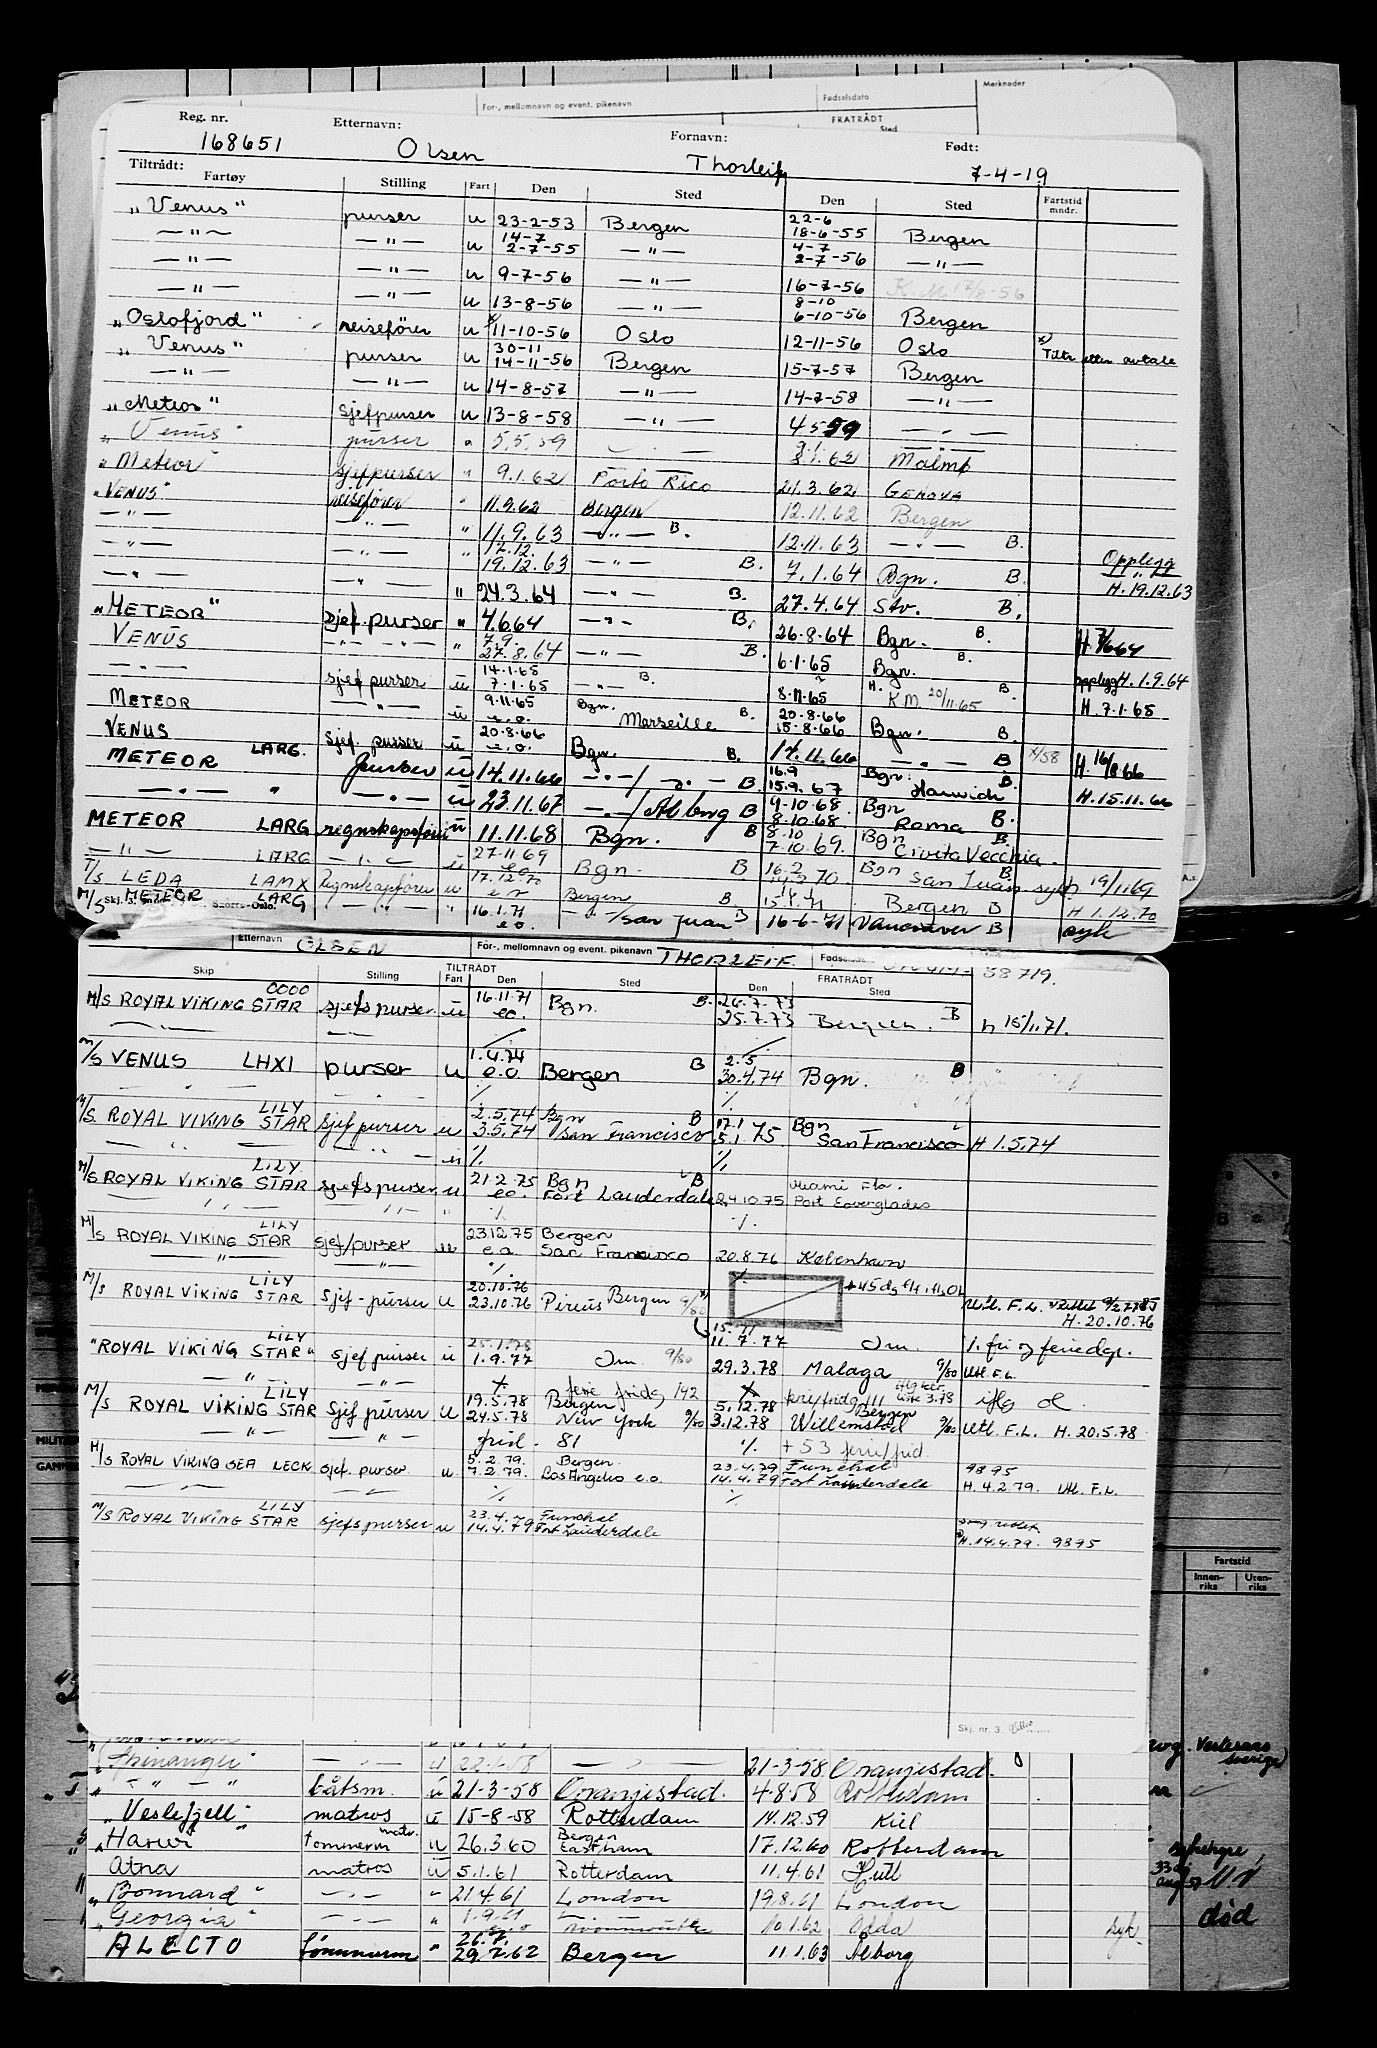 Merknader
For-, mellomnavn og event. pikenavn Fødselsdato
FRATRÅDT
Sted
Reg. nr. 168651 Etternavn: Olsen Fornavn: Thorleif Født: 7-4-19
Tiltrådt:
Fartøy Stilling Fart Den Sted Den Sted Fartstid mndr.
"Venus" purser u 23-2-53 Bergen 22-6 18-6-55 Bergen
—"— —"— u 14-7 2-7-55 —"— 4-7 2-7-56 —"—
—"— —"— u 9-7-56 —"— 16-7-56
—"— —"— u 13-8-56 —"— 8-10 6-10-56 Bergen
"Oslofjord" reisefører u 11-10-56 Oslo 12-11-56 Oslo x) Tiltr etter avtale
"Venus" purser u 30-11 14-11-56 Bergen 15-7-57 Bergen
—"— —"— u 14-8-57 —"— 14-7-58 —"—
"Meteor" sjefpurser u 13-8-58 —"— 4 5 59 —"—
"Venus" purser " 5.5.59 —"— 8.1.62 Malmø
"Meteor" sjefpurser " 9.1.62 Porto Rico 21.3.62 Genova
"VENUS" reisefører " 11.9.62 Bergen 12.11.62 Bergen
—"— —"— " 11.9.63 —"— B. 12.11.63 —"— B.
—"— —"— " 12.12. 19.12.63 —"— B. 7.1.64 Bgn. B. Opplegg H. 19.12.63
—"— —"— " 24.3.64 —"— B. 27.4.64 Stv. B.
"METEOR" sjef.purser " 4.6.64 —"— B. 26.8.64 Bgn. B.
VENUS —"— —"— " 7.9. 27.8.64 —"— B. 6.1.65 Bgn. B. opplegg H. 1.9.64
—"— sjef purser ü 14.1.65 7.1.65 —"— B. 8.11.65 H. K M 20/11-65 B. H. 7.1.65
METEOR —"— ü 9.11.65 e.o. Bgn. Marseille B. 20.8.66 15.8.66 Bgn. B.
VENUS sjef purser ü 20.8.66 e.o. Bgn. B. 14.11.66 —"— B H. 16/8 66
METEOR LARG. Purser ü 14.11.66 —"— B 16.9 15.9.67 Bgn. Harwich B. H. 15.11.66
—"— " —"— ü 23.11.67 —"—/Ålborg B 9-10-68 8.10.68 Bgn Roma B.
METEOR LARG regnskapsfører ü 11.11.68 Bgn. B 8.10 7.10.69. Bgn Civita Vecchia B.
—"— LARG —"— ü 27.11 69 e.o Bgn. B 16.2 70 Bgn San Juan syk B. h 19/11 69
T/S LEDA LAMX Regnskapfører u 17.12 70 e.o Bergen B. 15.1.71 Bergen B H 1.12.70
M/S METEOR LARG —"— " 16.1.71 e.o. —"—/San Juan B 16-6-71 Vancouver B syk
Etternavn OLSEN For-, mellomnavn og event. pikenavn THORLEIF.
Skip Stilling TILTRÅDT Fart Den Sted FRATRÅDT Den Sted
M/S ROYAL VIKING STAR OOOO sjefspurser ü 16.11.71 eo. Bgn. B. 26.7.73 25.7.73 Bergen. B h 15/11.71.
M/S VENUS LHXI purser u 1.4.74 e.o Bergen B 2.5 30.4.74 Bgn. B
M/S ROYAL VIKING STAR LILY sjef purser ü 2.5.74 3.5.74 Bgn San Francisco B 17.1 5.1 75 Bgn San Francisco H 1.5.74
M/S ROYAL VIKING STAR LILY. sjefspurser u 21.2.75 eo. Bgn Fort Lauderdale B 24.10.75 Miami Fla. Port Eoverglades
M/S ROYAL VIKING STAR LILY sjef/purser ü 23.12.75 e.o. Bergen San Francisco 20.8.76 København
M/S ROYAL VIKING STAR LILY sjef-purser u 20.10.76 23.10.76 Pireus Bergen 9/80 H. 20.10.76
"ROYAL VIKING STAR" LILY sjef purser ü 25.1.78 1.9.77 9/80 11.7.77 1. fri og feriedgr.
29.3.78 Malaga 9/80 Utl. F.L.
M/S ROYAL VIKING STAR LILY sjef purser u 19.5.78 24.5.78 Bergen New York 9/80 5.12.78 3.12.78 Bergen Willemstad 9/80 Utl. F.L. H. 20.5.78
—"— —"— frid - 81 ·/. + 53 ferie/frid
M/S ROYAL VIKING SEA LECK sjef. purser u 5.2.79. 7.2.79. Bergen. Los Angeles e.o. 23.4.79 14.4.79 Funchal Fort Lauderdale 9895 H. 4.2.79. Utl. F.L.
M/S ROYAL VIKING STAR LILY sjefspurser u 23.4.79 14.4.79 Funchal Fort Lauderdale H. 14.4.79. 9895
Fartstid
Innen-riks Uten-riks
Skj. nr. 3.
"Spinanger" —"— 22.1.58 —"— 21-3-58 Oranjestad.
—"— båtsm. ü 21-3-58 Oranjestad. 4-8-58 Rotterdam
"Veslefjell" matros ü 15-8-58 Rotterdam 14.12.59 Kiel
"Harur" tømmerm matr. u 26.3.60 Bergen Eastham 17.12.60 Rotterdam
Atna matros ü 5.1.61 Rotterdam 11.4.61 Hull
"Bonnard" —"— " 21.4.61 London 19.8.61 London
"Georgia" —"— " 1.9.61 e.o 10.1.62 Odda syk
ALECTO tømmerm " 26.7. 29.7.62 Bergen 11.1.63 Ålborg
død